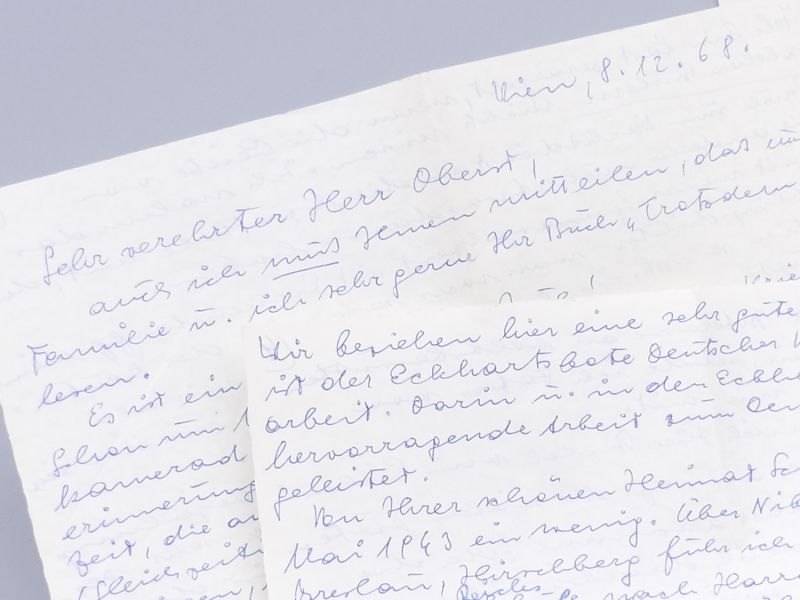 Wien, 8.12.68.
Sehr verehrter Herr Oberst!
auch ich muß Ihnen mitteilen, das
Familie u. ich sehr gerne Ihr Buch „Trotzdem
lesen.
Es ist ein
Schon
kamerad
erinnerung
Zeit, die
Wir beziehen hier eine sehr gute
ist der Eckhartsbote Deutscher
arbeit. Darin u. in den
hervorragende Arbeit zum
geleistet.
Von Ihrer schönen Heimat
Mai 1943 ein wenig. Über
Breslau, Hirschberg fuhr ich
nach